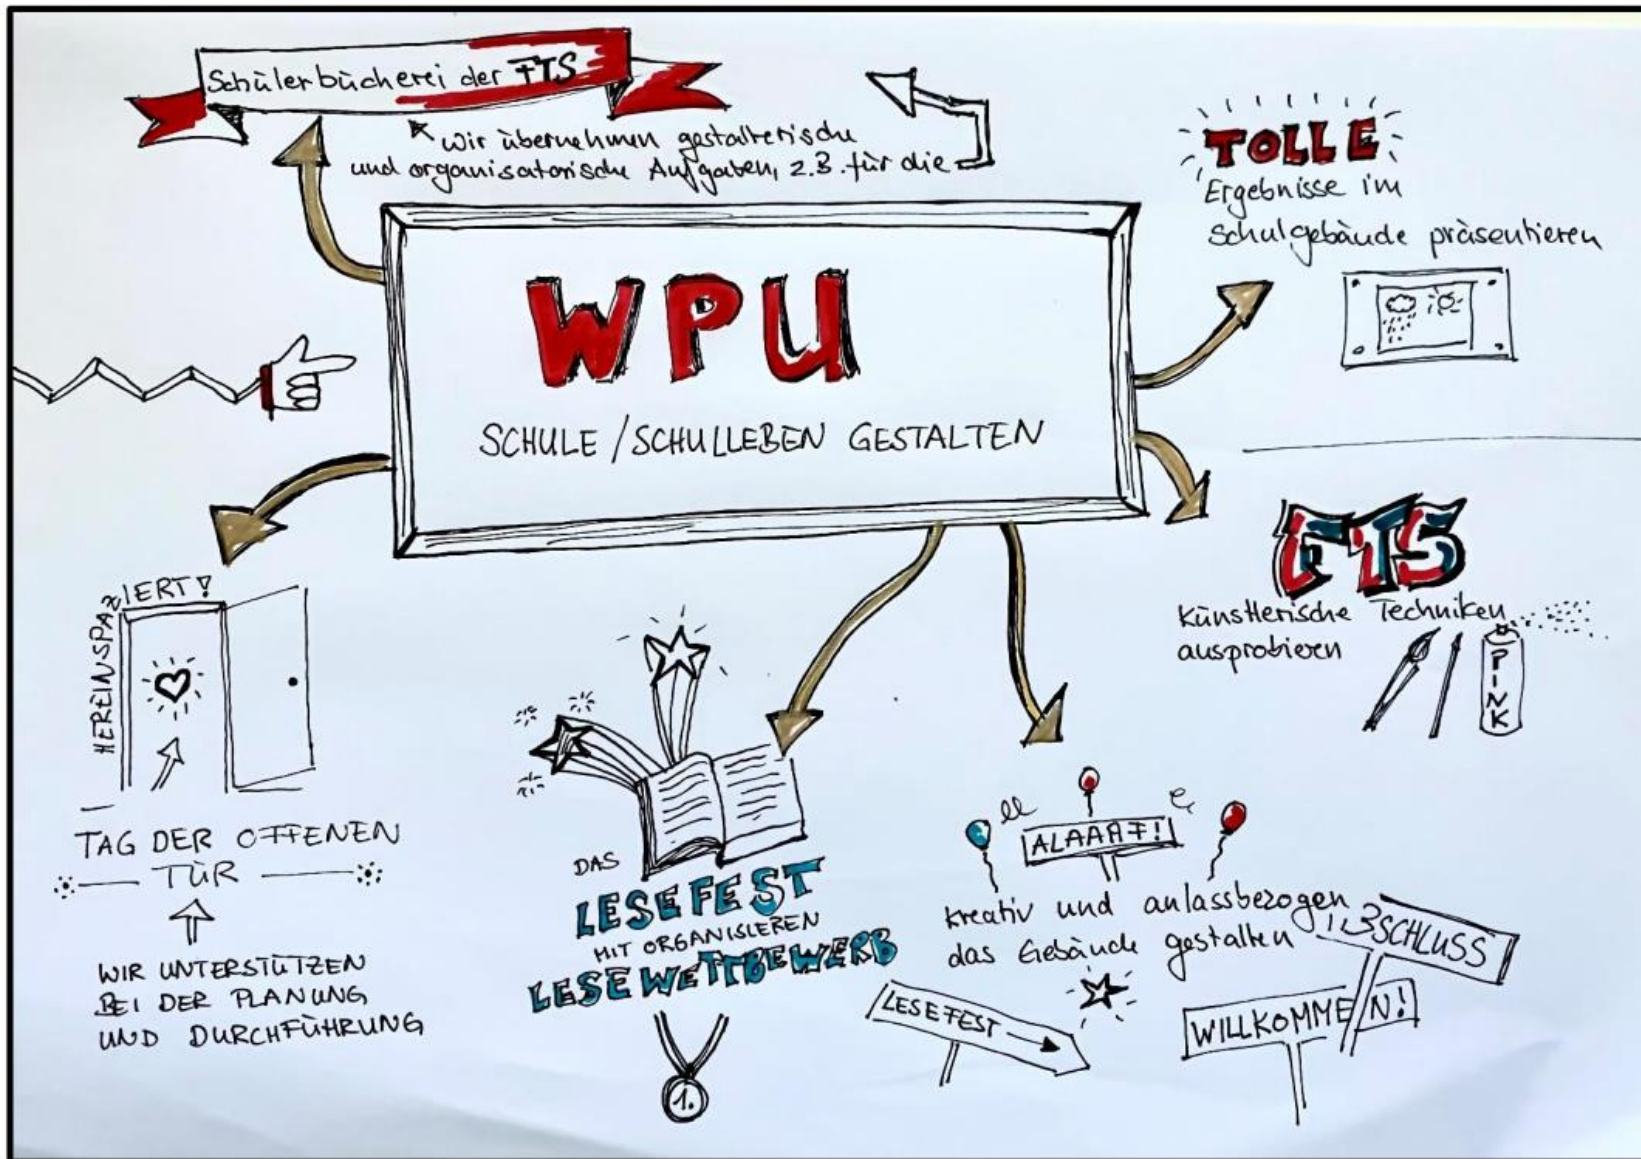 Schülerbücherei der FTS
wir übernehmen gestalterische
und organisatorische Aufgaben, z.B. für die
TOLLE
Ergebnisse im
Schulgebäude präsentieren
WPU
SCHULE / SCHULLEBEN GESTALTEN
FTS
künstlerische Techniken
ausprobieren
PINK
HEREINSPAZIERT!
TAG DER OFFENEN
TÜR
WIR UNTERSTÜTZEN
BEI DER PLANUNG
UND DURCHFÜHRUNG
DAS
LESEFEST
MIT ORGANISIEREN
LESEWETTBEWERB
1.
ALAAAF!
kreativ und anlassbezogen
das Gebäude gestalten
1,2,3 SCHLUSS
LESEFEST
WILLKOMMEN!